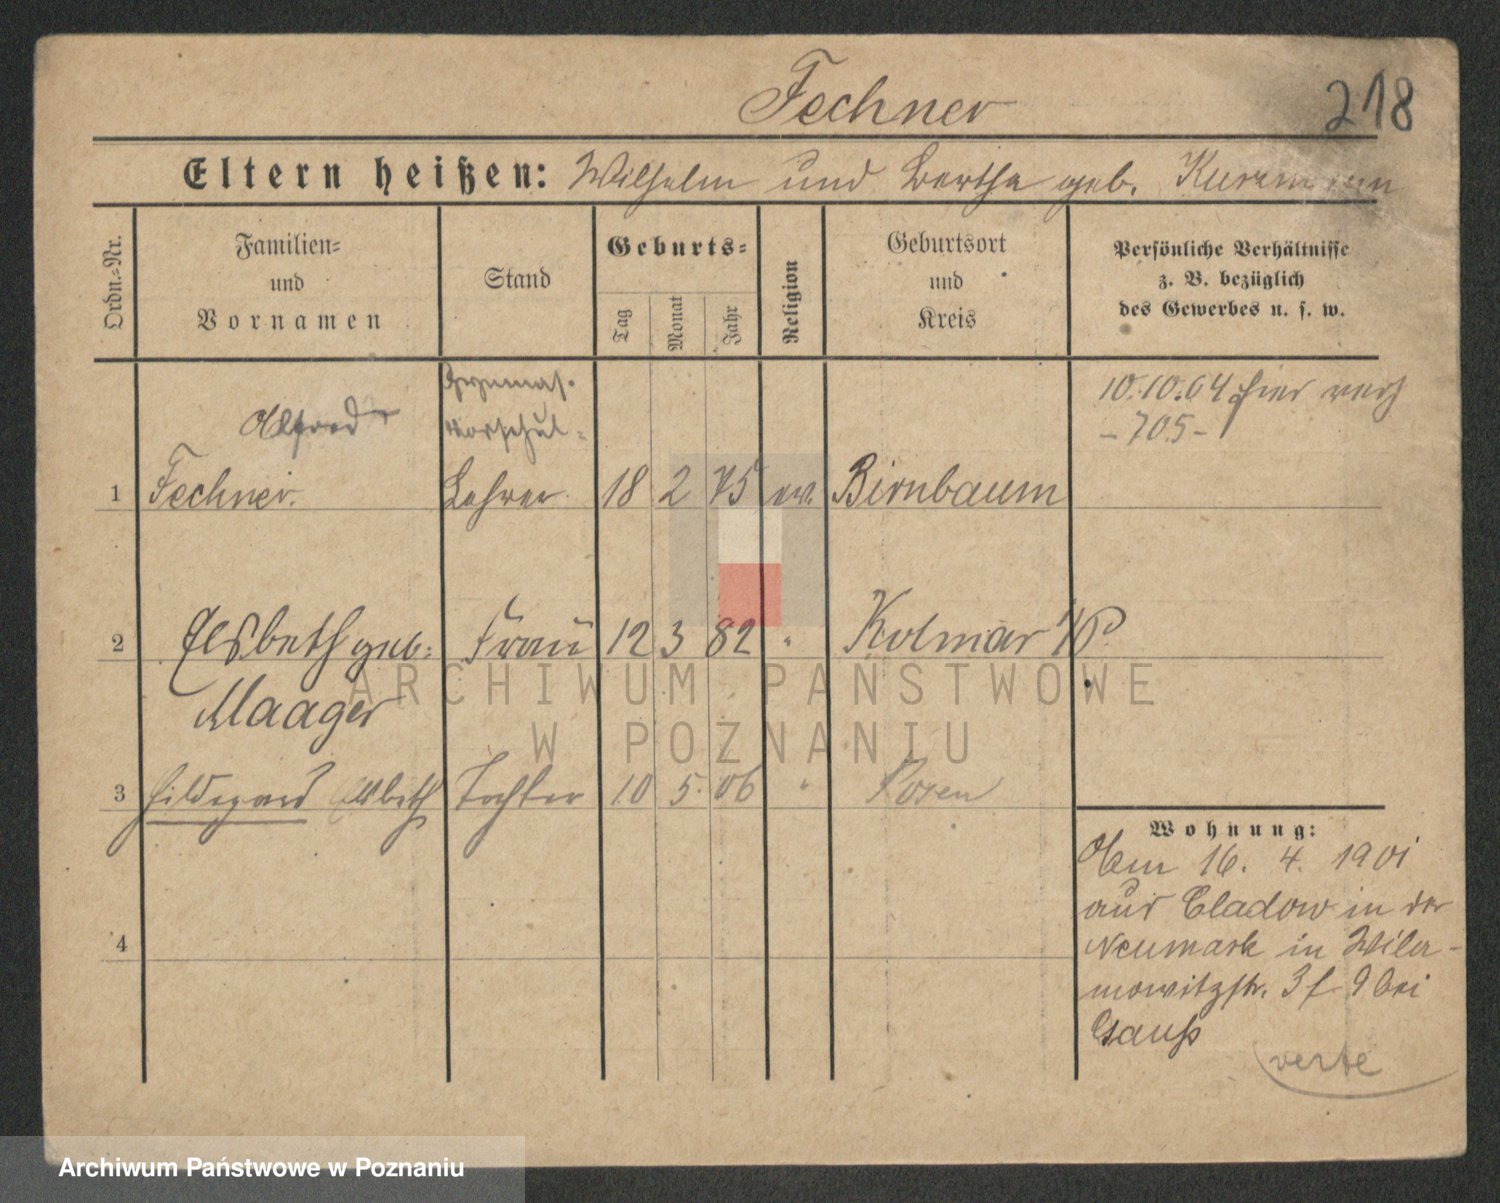 Fechner
218
Eltern heißen: Wilhelm und Bertha geb.
Ordn.=Nr.
Familien=
und
Vornamen
Stand
Geburts=
Tag
Monat
Jahr
Religion
Geburtsort
und
Kreis
Persönliche Verhältnisse
z. B. bezüglich
des Gewerbes u. s. w.
Alfred
1 Fechner.
Gymnas.
Vorschul=
Lehrer
18 2 75 ev. Birnbaum
10.10.04 hier verh
-705-
2 Elsbeth geb.
Maager
Frau 12 3 82 " Kolmar i/P
3 Hildegard Elsbeth Tochter 10 5. 06 " Posen
4
Wohnung:
Am 16. 4. 1901
aus Cladow in der
Neumark in
mowitzstr. 3 f 9 bei
Gauß
verte
ARCHIWUM PAŃSTWOWE
W POZNANIU
Archiwum Państwowe w Poznaniu